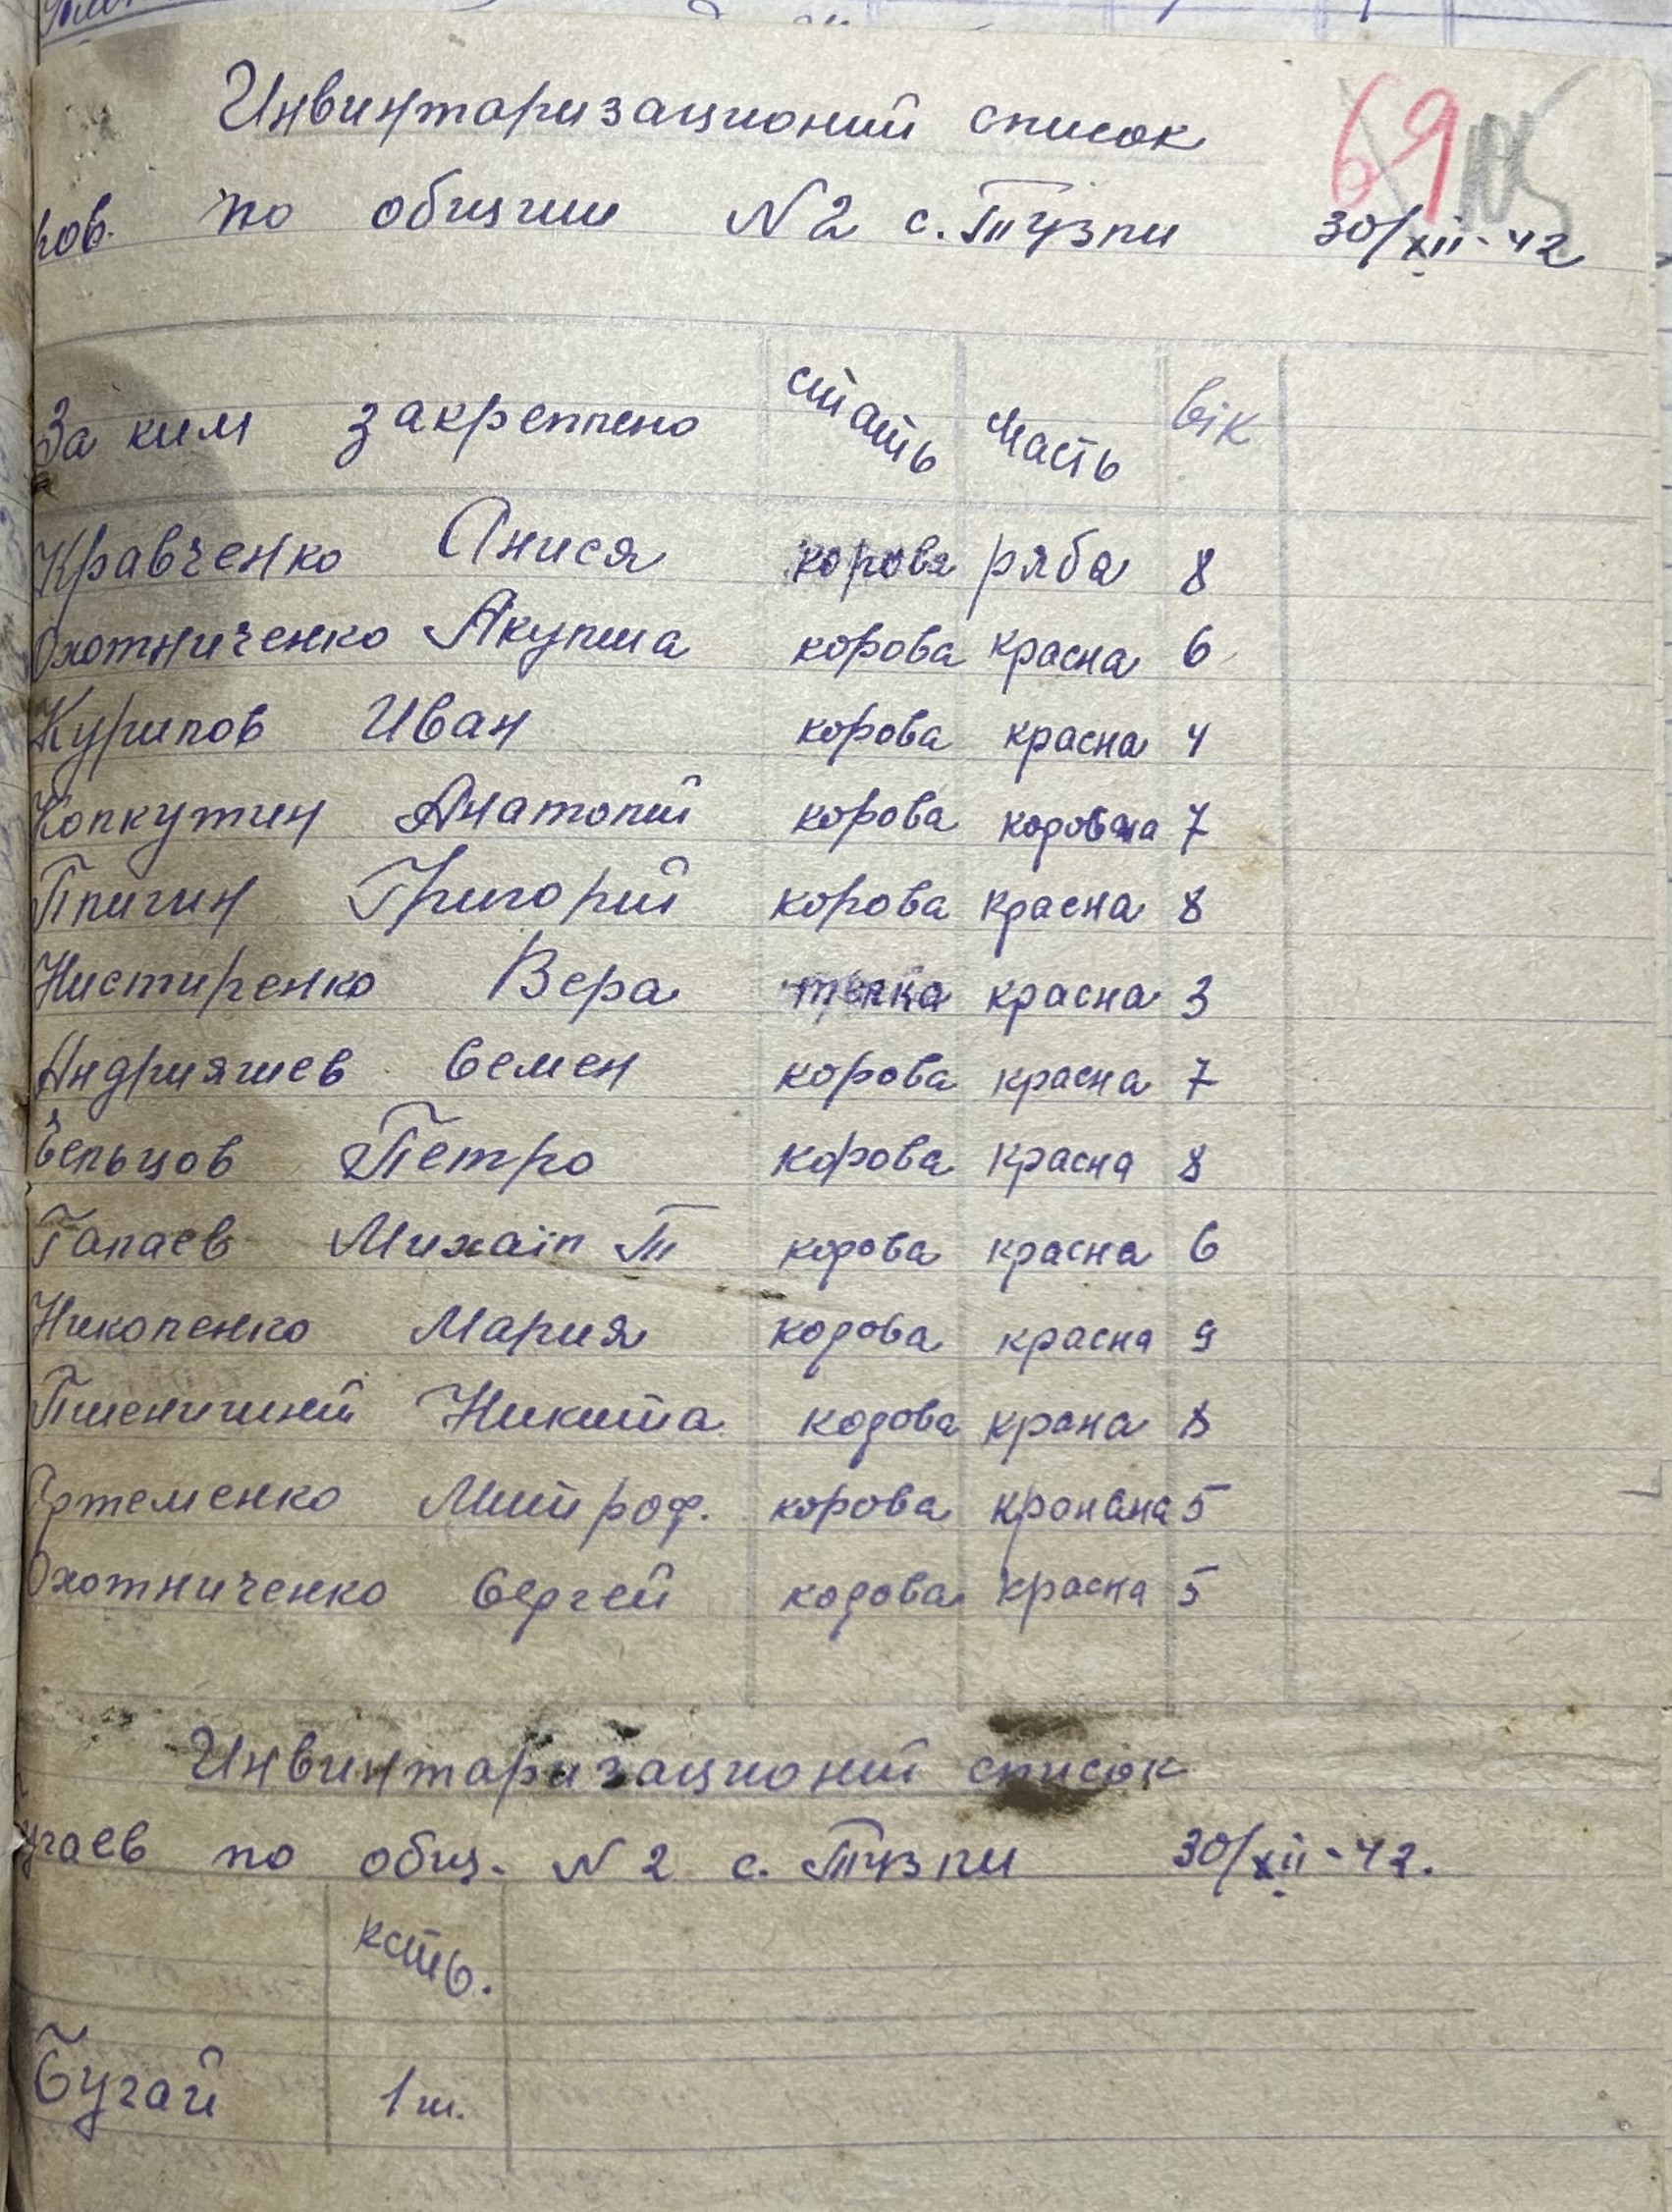 Инвинтаризационий список
69 105
ков. по общини N2 с. Тузли 30/XII-42
За ким закреплено стать масть вік
Кравченко Анися корова ряба 8
Охотниченко Акулина корова красна 6
Курилов Иван корова красна 4
Колкутин Анатолий корова 7
Плигин Григорий корова красна 8
Нистиренко Вера телка красна 3
Андрияшев Семен корова красна 7
Бельцов Петро корова красна 8
Галаев Михаіл Т корова красна 6
Николенко Мария корова красна 9
Пшеничний Никита корова крана 8
Артеменко Митроф. корова 5
Охотниченко Сергей корова красна 5
Инвинтаризационий список
бугаев по общ. N2 с. Тузли 30/XII-42.
ксть.
Бугай 1 ш.